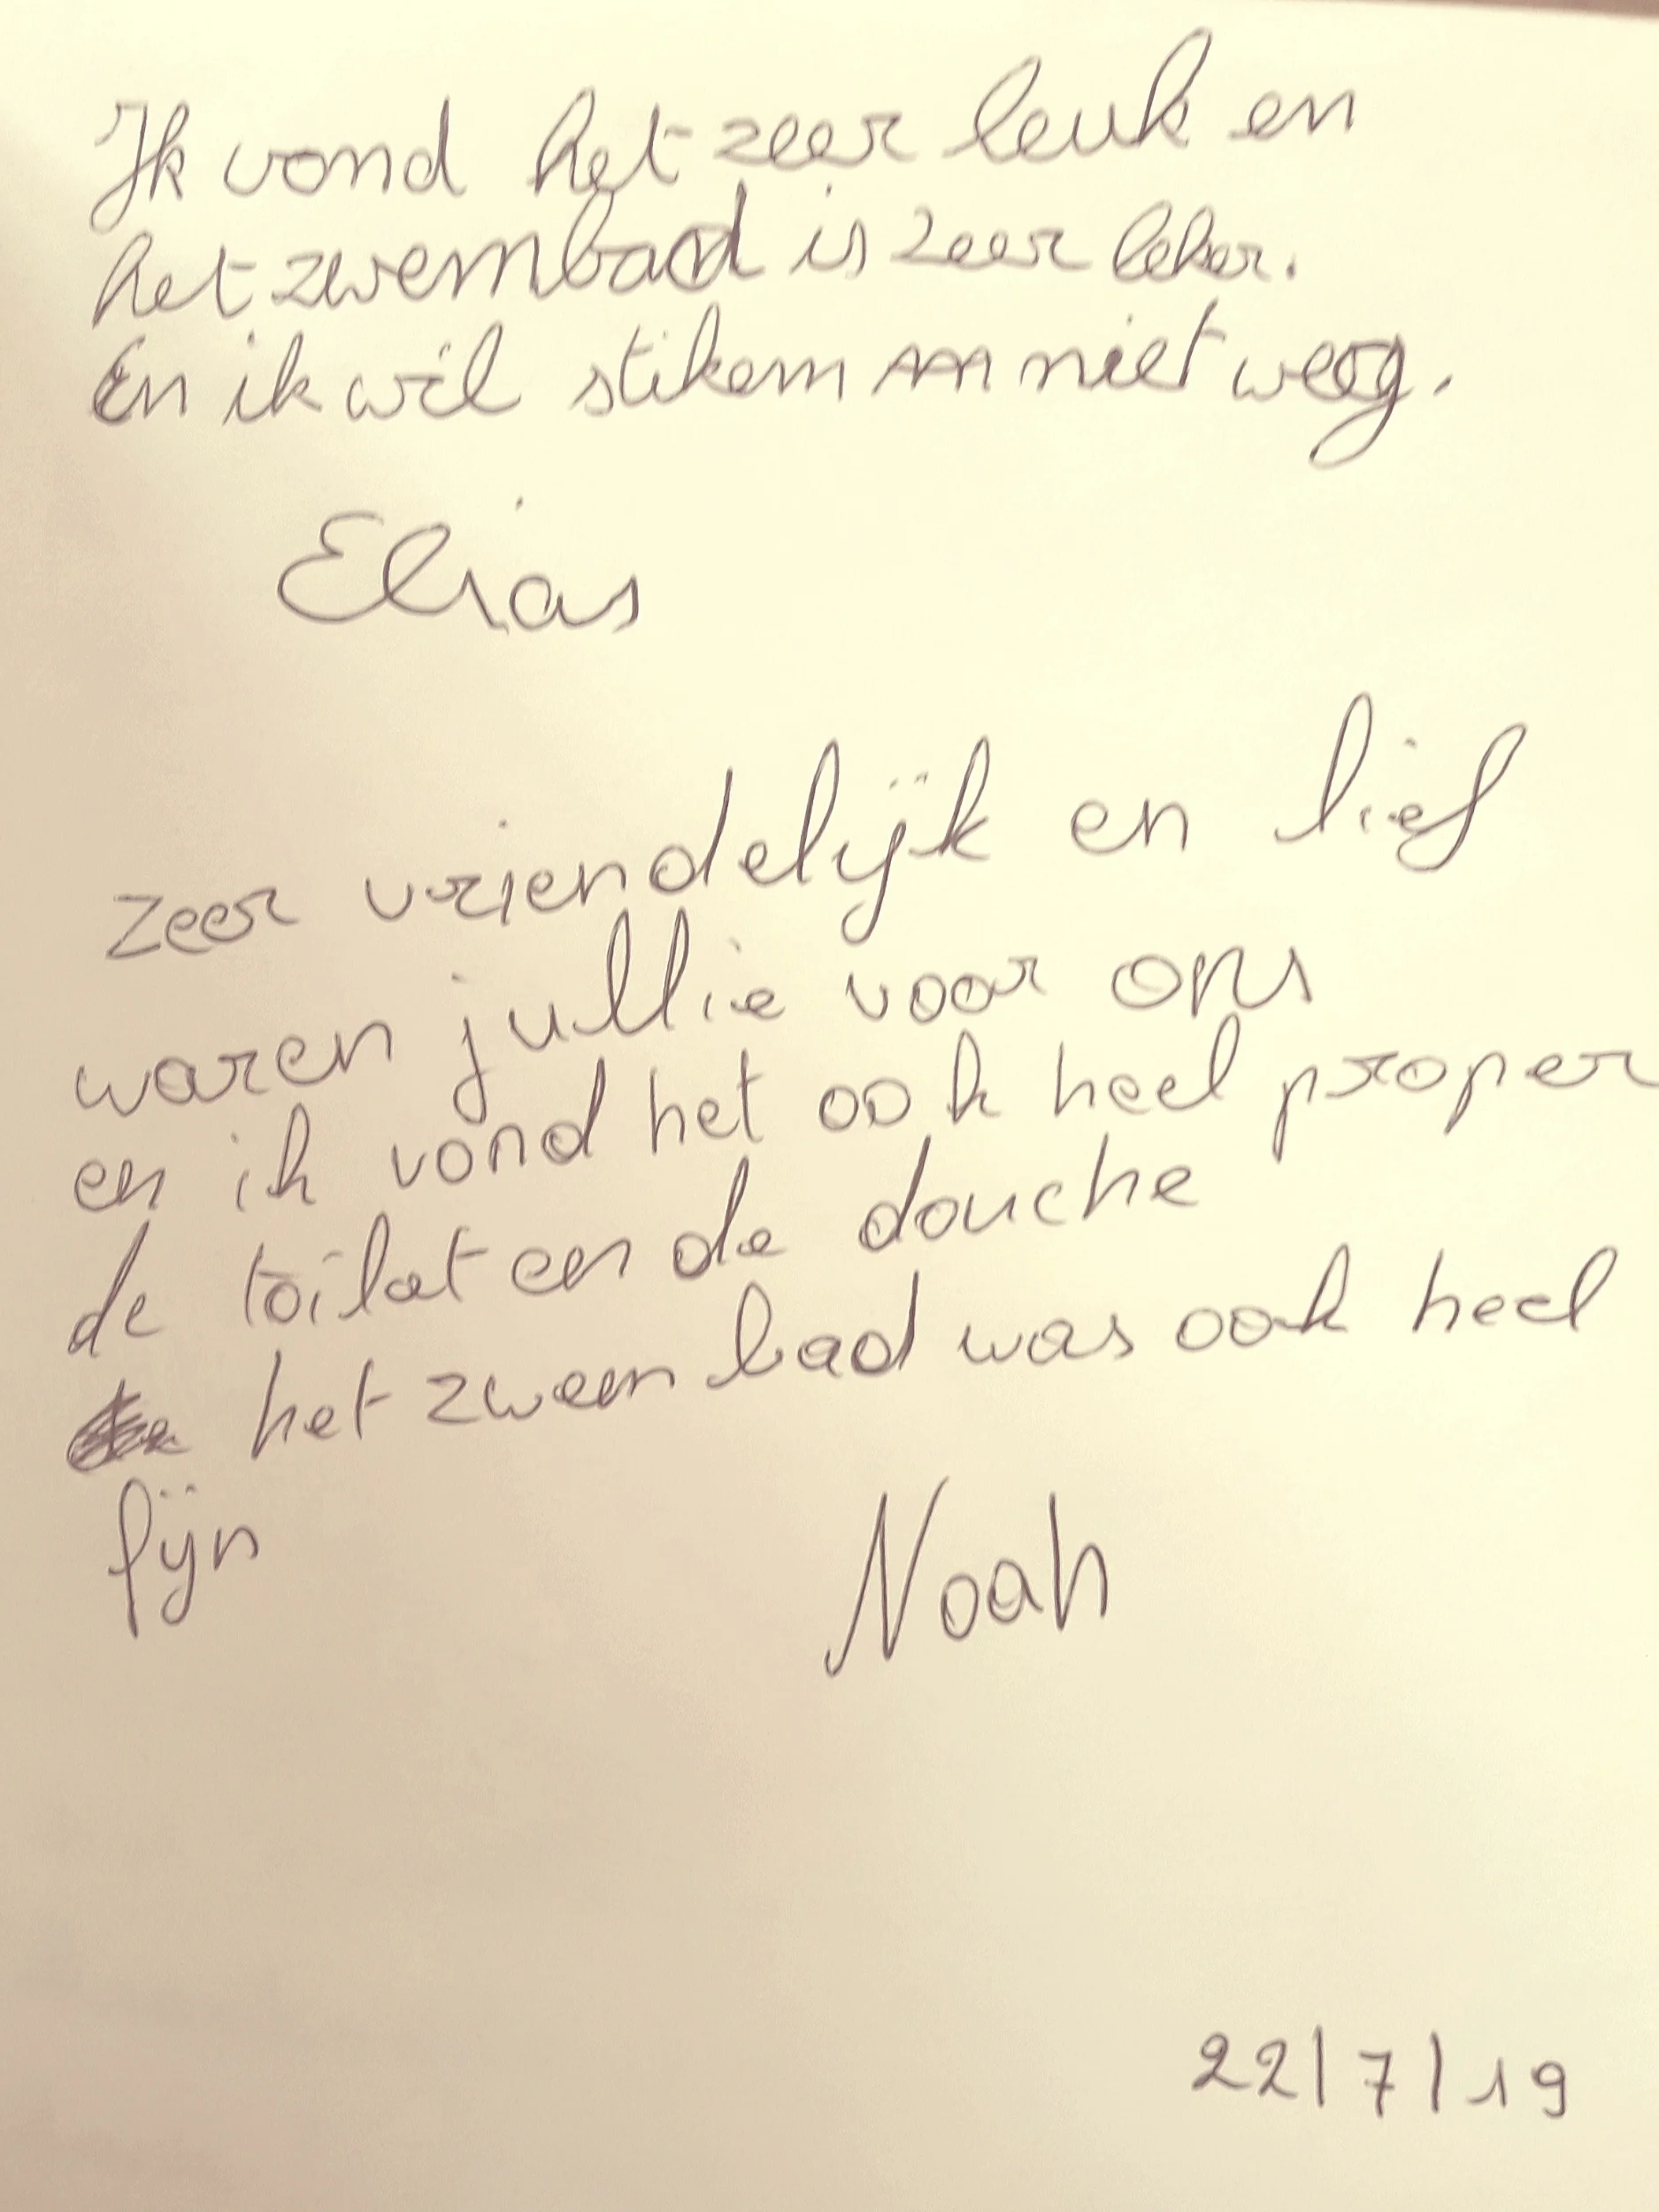 Ik vond het zeer leuk en
het zwembad is zeer leker.
En ik wil stikem niet weg.
Elias
zeer vriendelijk en lief
waren jullie voor ons
en ik vond het ook heel proper
de toilet en de douche
het zweembad was ook heel
fijn
Noah
22/7/19